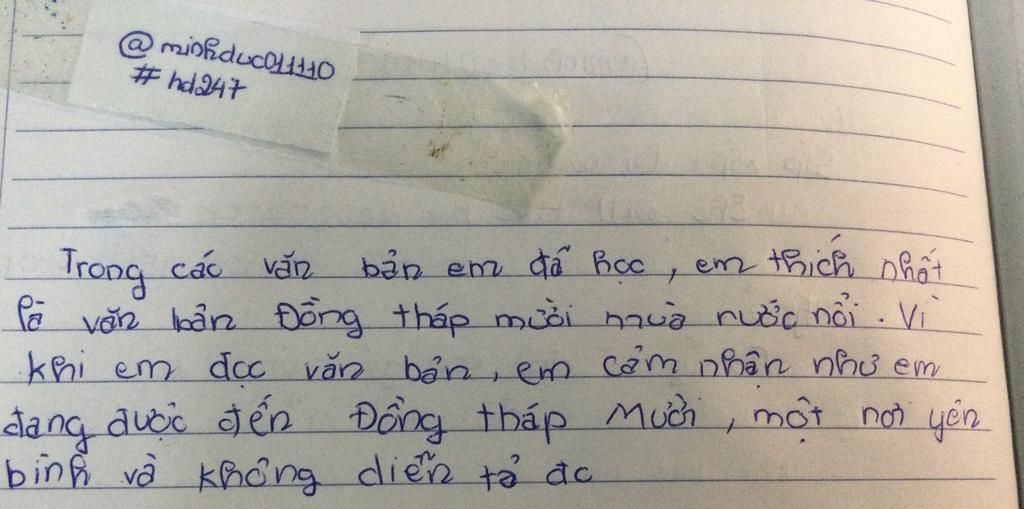 @minhduc011110
#hd247
Trong các văn bản em đã học, em thích nhất
là văn bản Đồng tháp mười mùa nước nổi. Vì
khi em đọc văn bản, em cảm nhận như em
đang được đến Đồng tháp Mười, một nơi yên
bình và không diễn tả đc